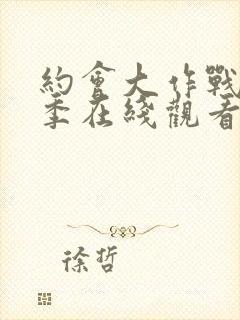 約會大作戰
季在綫觀看
徐哲